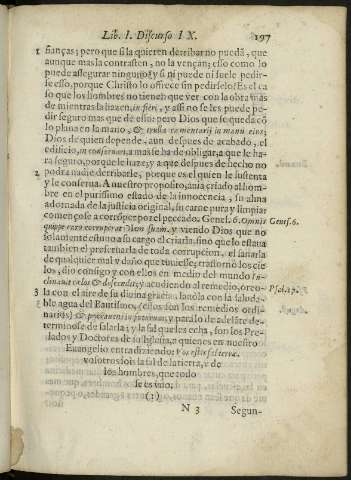 Lib. I. Discurso IX. 197
1 fianças; pero que si la quieren derribar no puedã, que
aunque mas la contrasten, no la vençan; esso como lo
puede assegurar ninguno? y si ni puede ni suele pedir-
se esso, porque Christo lo offrece sin pedirselo? Es el ca
so que los hombres no tienen que ver con la obra mas
de mientras la hazen, in fieri, y assi no se les puede pe-
dir seguro mas que de esso: pero Dios que se queda cõ
lo plana en la mano, & trulla cementarij in manu eius;
Dios de quien depende, aun despues de acabado, el
edificio, in conseruari, a mas se ha de obligar, a que le ha-
ra seguro, porque le haze, y a que despues de hecho no
2 podrà nadie derribarle, porque es el quien le sustenta
y le conserua. A nuestro proposito, auia criado al hom-
bre en el purissimo estado de la innocencia, su alma
adornada de la justicia original, su carne pura y limpia:
començose a corróper por el peccado. Genes. 6. Omnis Genes. 6.
quippe caro corruperat viam suam, y viendo Dios que no
solamente estuuo a su cargo el criarla, sino que lo estaua
tambien el preseruarla de toda corrupcion, el sanarla
de qualquier mal y daño que tuuiesse; trastornò los cie
los, dio consigo y con ellos en medio del mundo In-
clinauit cælos & descendit; y acudiendo al remedio, oreo- Psal. 17.
3 la con el aire de su diuina gracia: bañola con la saluda-
ble agua del Bautismo, (estos son los remedios ordi-
narios)
terminose de salarla; y la sal que les echa, son los Pre-
lados y Doctores de su Iglesia, a quienes en nuestro
Euangelio entra diziendo; Vos estis sal terræ.
vosotros sois la sal de la tierra, y de
los hombres, que todo
se es vno.
(?)
N 3 Segun-